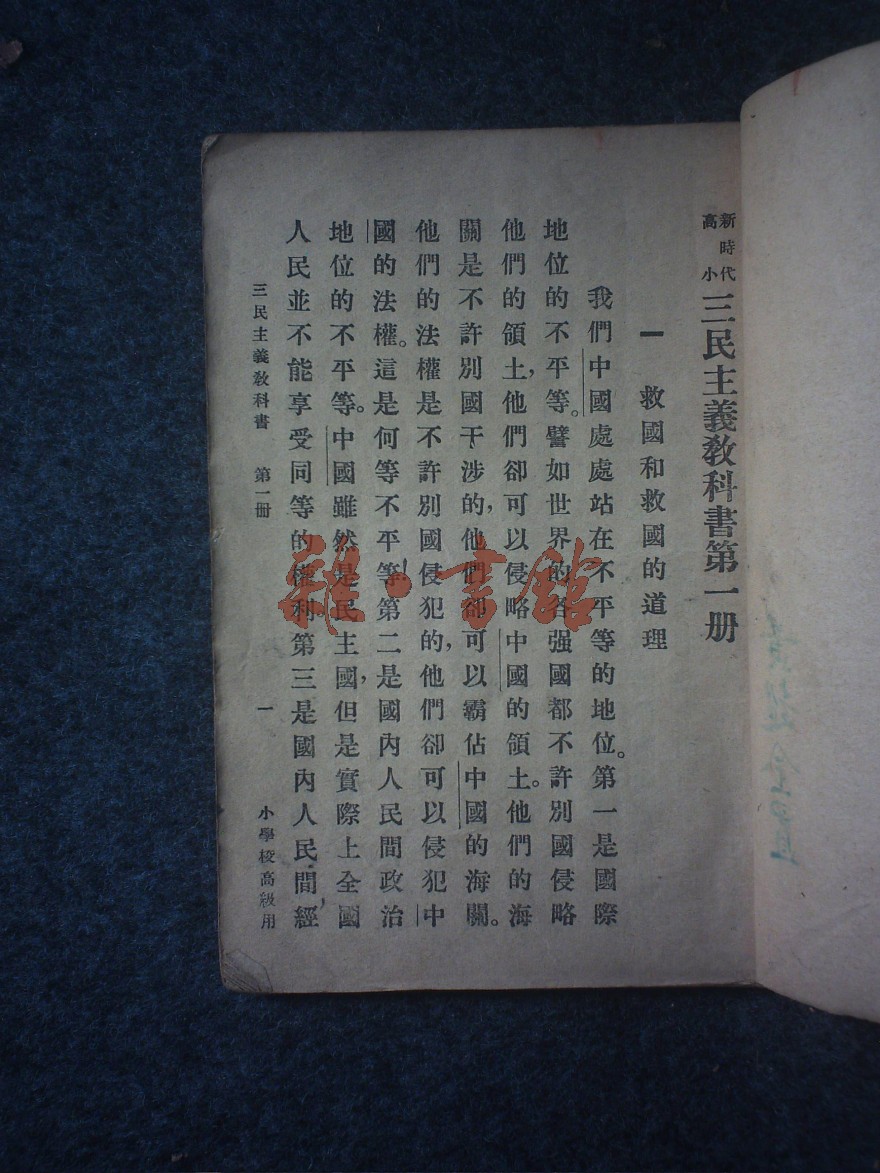 新時代
高小
三民主義教科書第一册
一 救國和救國的道理
我們中國處處站在不平等的地位。第一是國際
地位的不平等。譬如世界的各强國都不許別國侵略
他們的領土,他們卻可以侵略中國的領土。他們的海
關是不許別國干涉的,他們卻可以霸佔中國的海關。
他們的法權是不許別國侵犯的,他們卻可以侵犯中
國的法權。這是何等不平等!第二是國內人民間政治
地位的不平等。中國雖然是民主國,但是實際上全國
人民並不能享受同等的權利。第三是國內人民間,經
三民主義教科書 第一册 一 小學校高級用
雜·書館